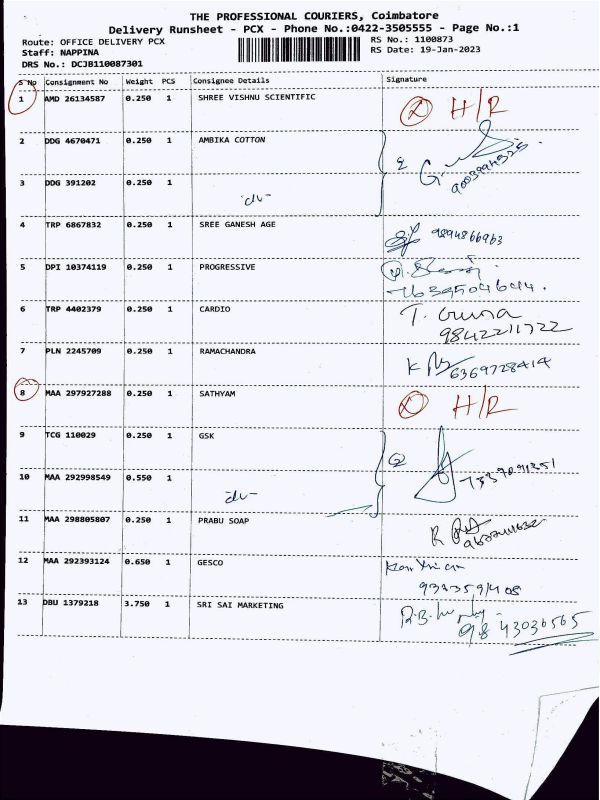 THE PROFESSIONAL COURIERS, Coimbatore
Delivery Runsheet - PCX - Phone No.:0422-3505555 - Page No.:1
Route: OFFICE DELIVERY PCX
RS No.: 1100873
Staff: NAPPINA
RS Date: 19-Jan-2023
DRS No.: DCJB110087301
S No Consignment No Weight PCS Consignee Details Signature
1 AMD 26134587 0.250 1 SHREE VISHNU SCIENTIFIC
H/R
2 DDG 4670471 0.250 1 AMBIKA COTTON
3 DDG 391202 0.250 1
4 TRP 6867832 0.250 1 SREE GANESH AGE
9894866963
5 DPI 10374119 0.250 1 PROGRESSIVE
6 TRP 4402379 0.250 1 CARDIO
9842211722
7 PLN 2245709 0.250 1 RAMACHANDRA
6369728414
8 MAA 297927288 0.250 1 SATHYAM
H/R
9 TCG 110029 0.250 1 GSK
10 MAA 292998549 0.550 1
11 MAA 298805807 0.250 1 PRABU SOAP
12 MAA 292393124 0.650 1 GESCO
13 DBU 1379218 3.750 1 SRI SAI MARKETING
9843036565